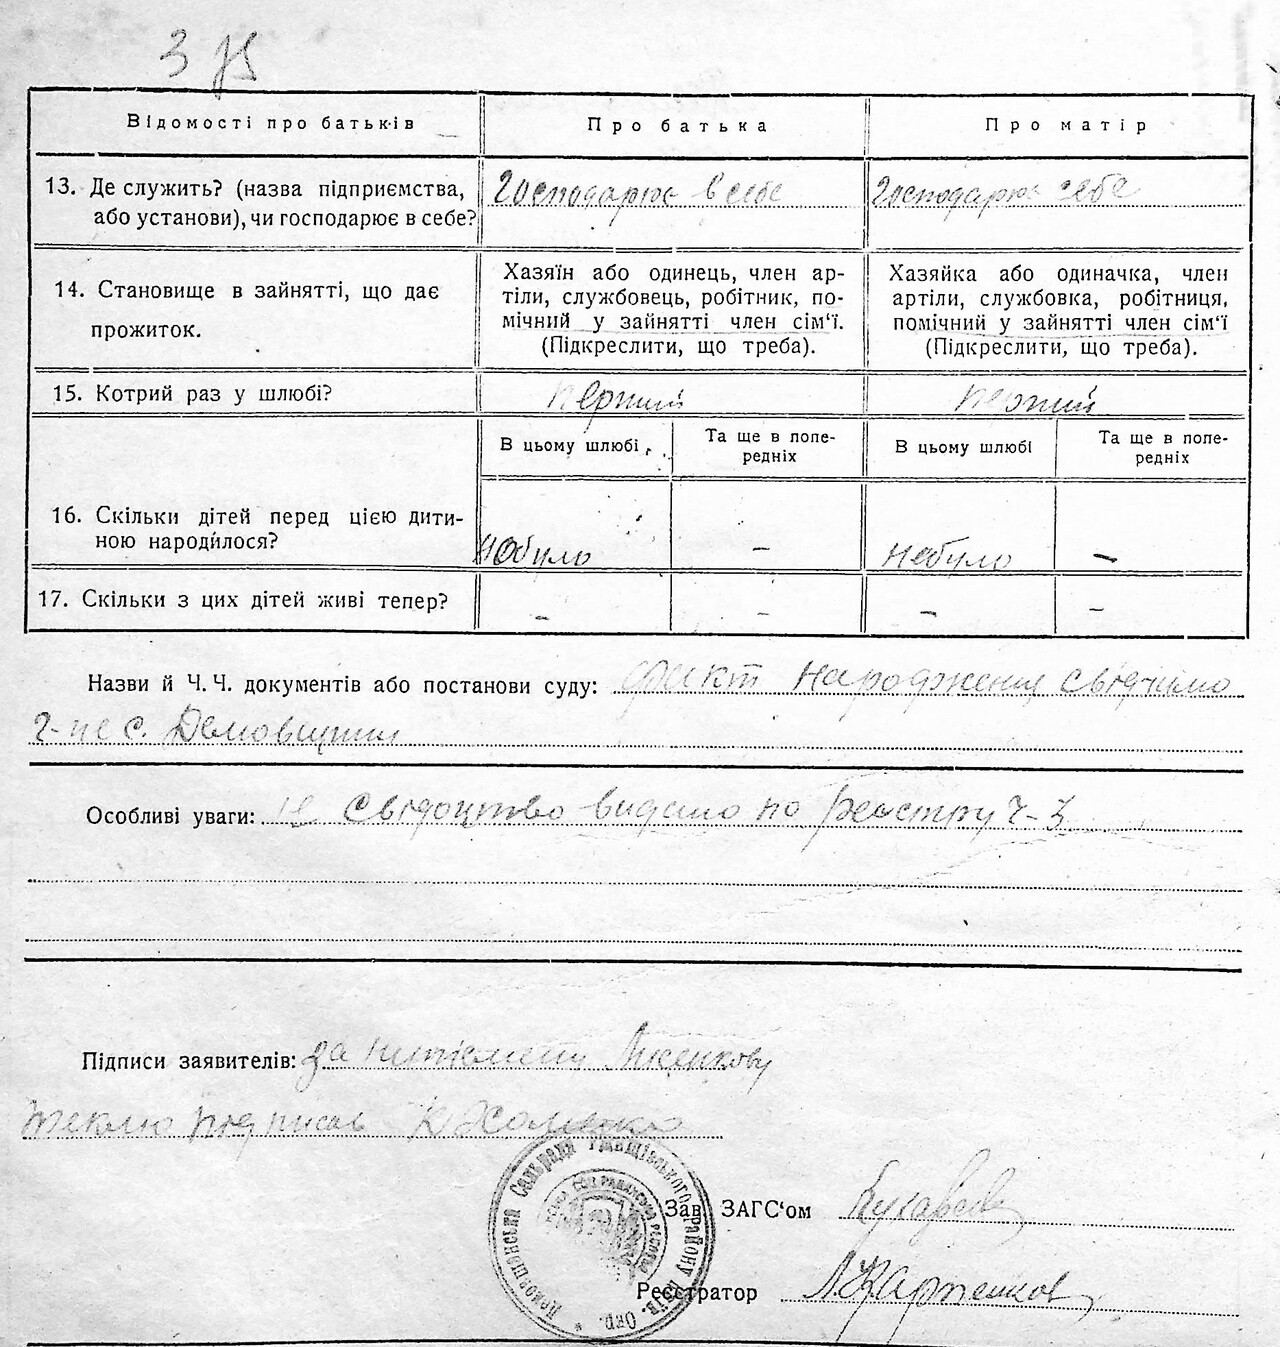 З
Відомості про батьків
Про батька
Про матір
13. Де служить? (назва підприємства,
або установи), чи господарює в себе?
Господарює в себе
Господарює себе
14. Становище в зайнятті, що дає
прожиток.
Хазяїн або одинець, член ар-
тіли, службовець, робітник, по-
мічний у зайнятті член сім‘ї.
(Підкреслити, що треба).
Хазяйка або одиначка, член
артіли, службовка, робітниця,
помічний у зайнятті член сім‘ї
(Підкреслити, що треба).
15. Котрий раз у шлюбі?
перший
перший
В цьому шлюбі
Та ще в попе-
редніх
В цьому шлюбі
Та ще в попе-
редніх
16. Скільки дітей перед цією дити-
ною народилося?
небуло
–
небуло
–
17. Скільки з цих дітей живі тепер?
–
–
–
–
Назви й Ч. Ч. документів або постанови суду: факт народження свідчимо
г-не с. Демовщини
Особливі уваги: Свідоцтво видано по реєстру Ч-3
Підписи заявителів: за неписмену Лисенкову
Теклю підписав К Хоменко
Демовщанська Сельрада Ржищівського району Київ. Окр.
Зав. ЗАГС‘ом
Реєстратор Л. Карпенков